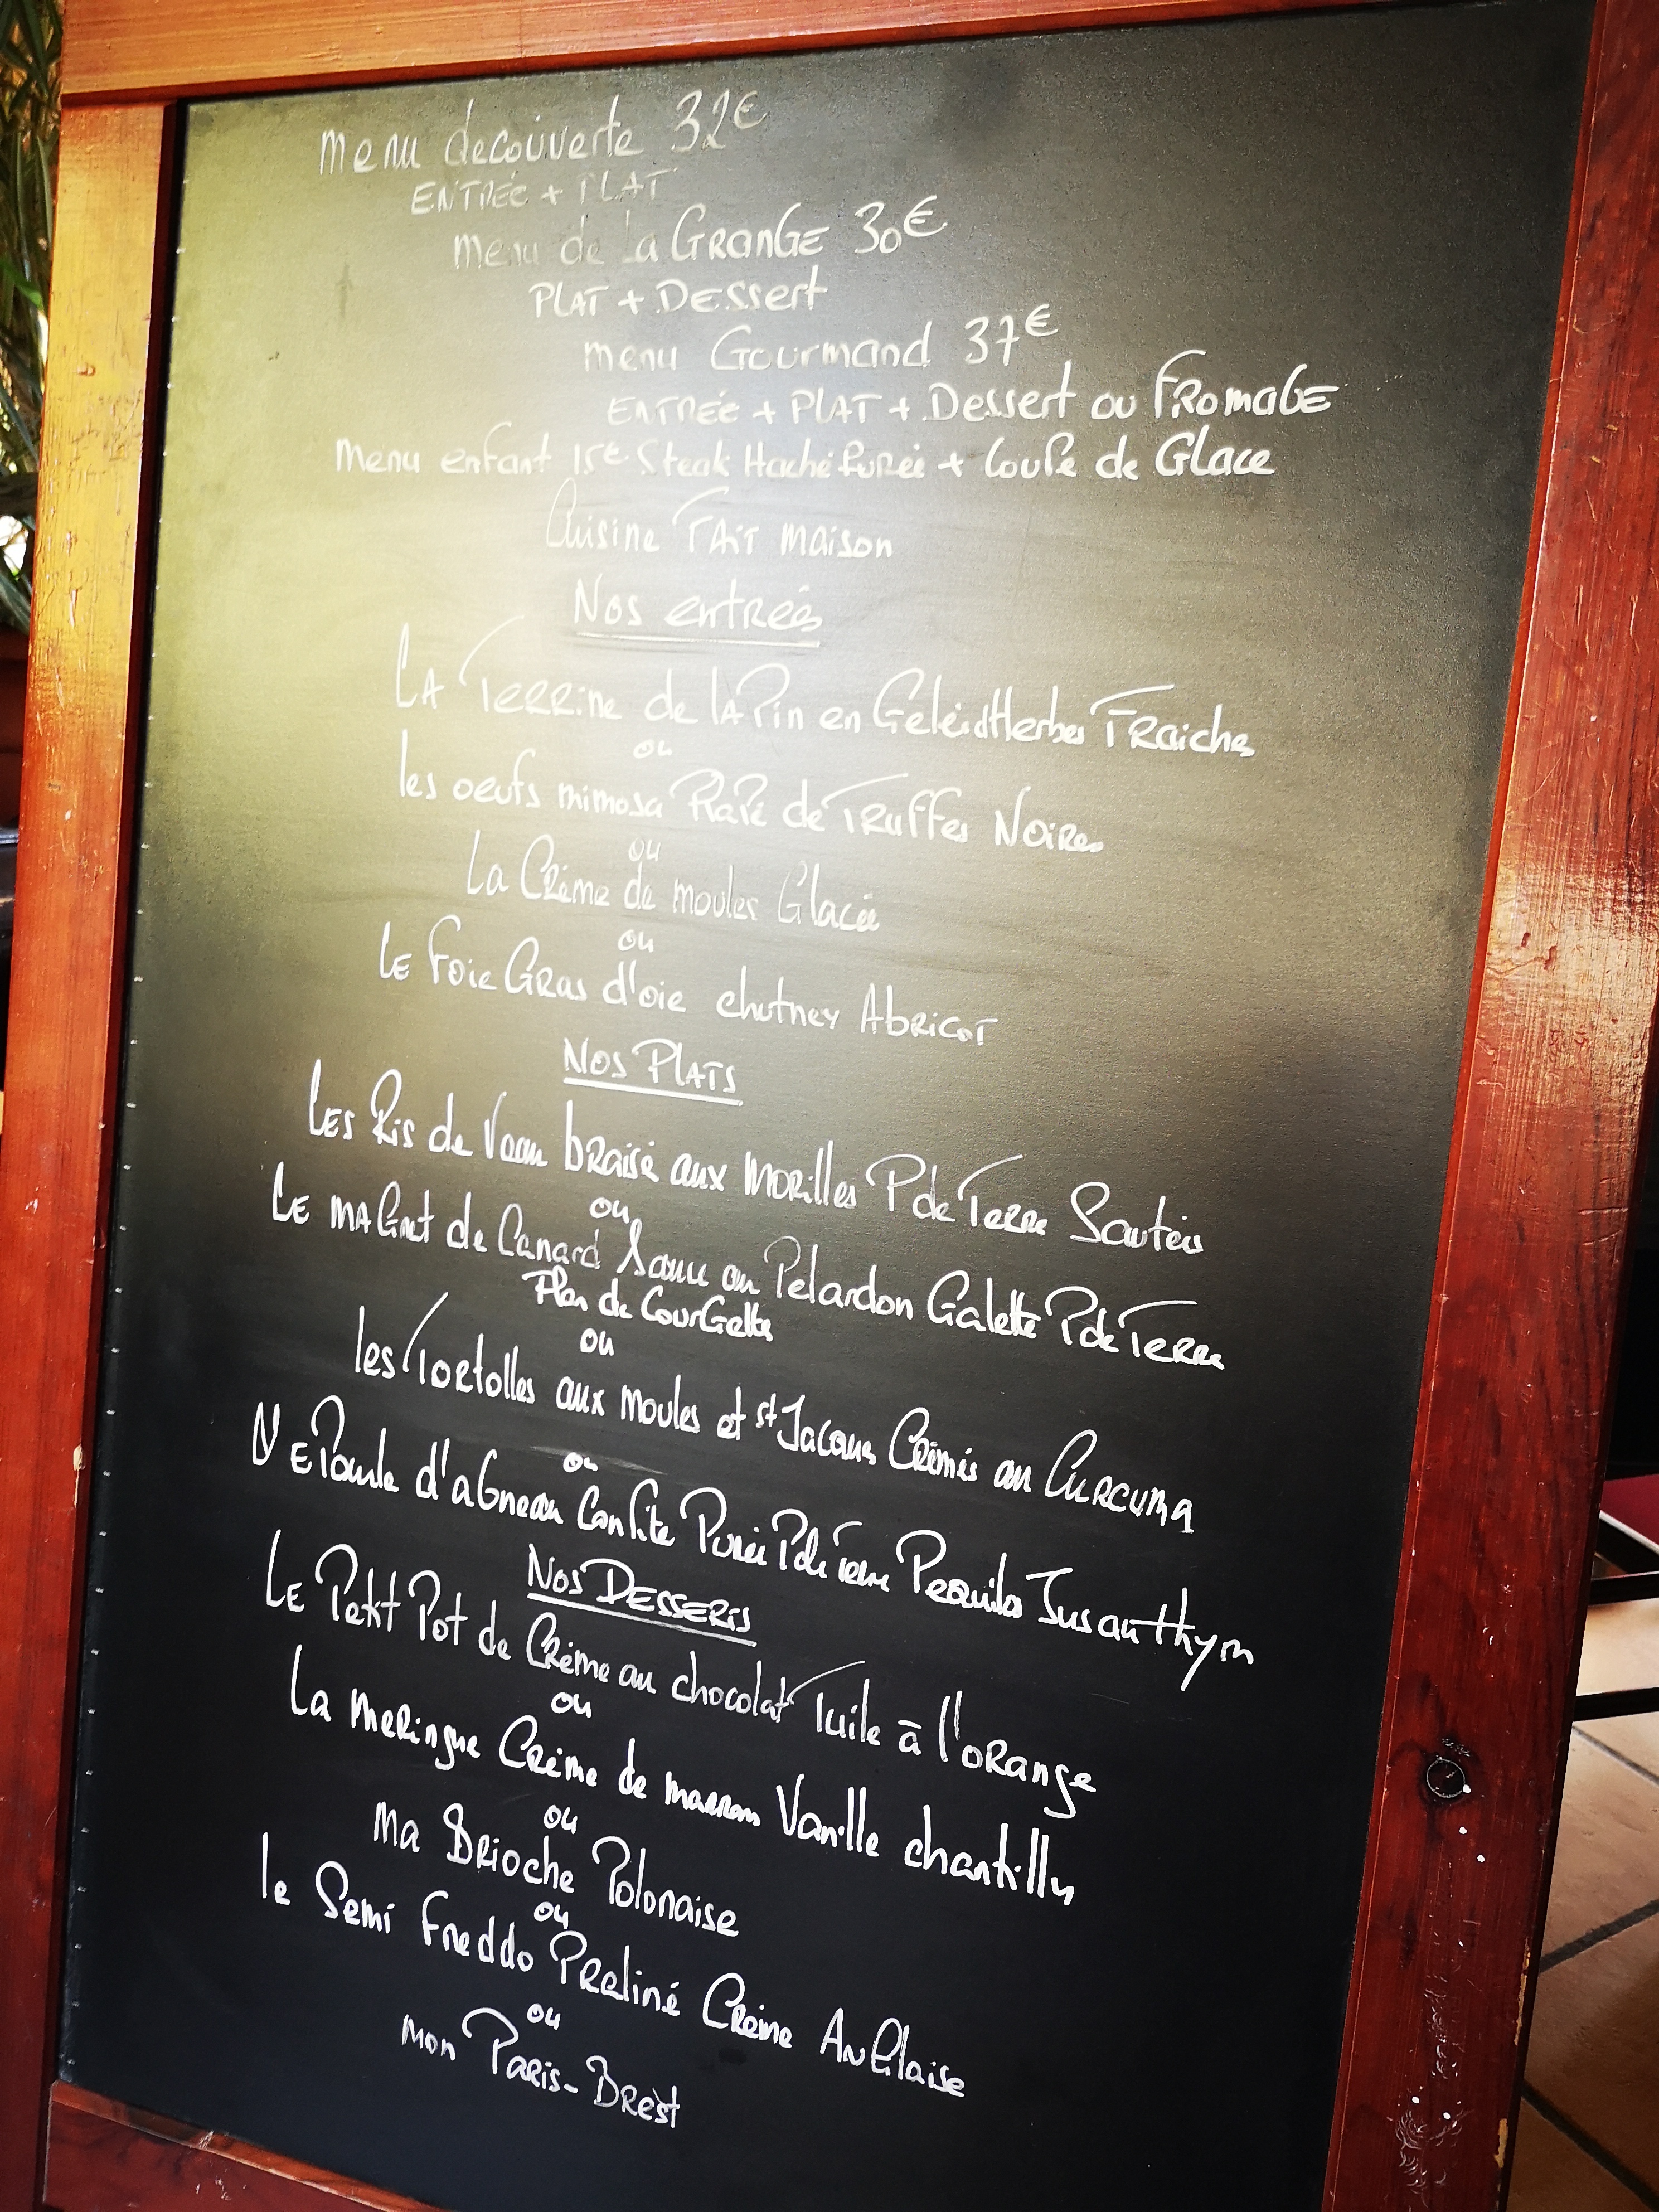 menu decouverte 32€
ENTRÉE + PLAT
menu de la GRANGE 30€
PLAT + Dessert
menu Gourmand 37€
ENTRÉE + PLAT + Dessert ou FROMAGE
menu enfant 15€ Steak Haché Purée + Coupe de Glace
Cuisine FAIT maison
Nos entrées
LA Terrine de lAPin en Gelée d'Herbes Fraiches
ou
les oeufs mimosa Rapé de Truffes Noires
ou
La Crème de moules Glacée
ou
LE foie Gras d'oie chutney Abricot
NOS PLATS
LES Ris de Veau braisé aux morilles P de Terre Sautées
ou
LE maGret de Canard au Pelardon Galette P de Terre
Flan de CourGette
ou
les Tortolles aux moules et St Jacques Crémés au CURCUMA
ou
EPaule d'aGneau Confite Purée P de Terre Pequillos Jus au thym
NOS DESSERTS
LE Petit Pot de Crème au chocolat Tuile à l'orange
ou
La meringue Crème de marron Vanille chantilly
ou
ma Brioche Polonaise
ou
le Semi Freddo Praliné Crème AnGlaise
ou
mon PARis-Brest